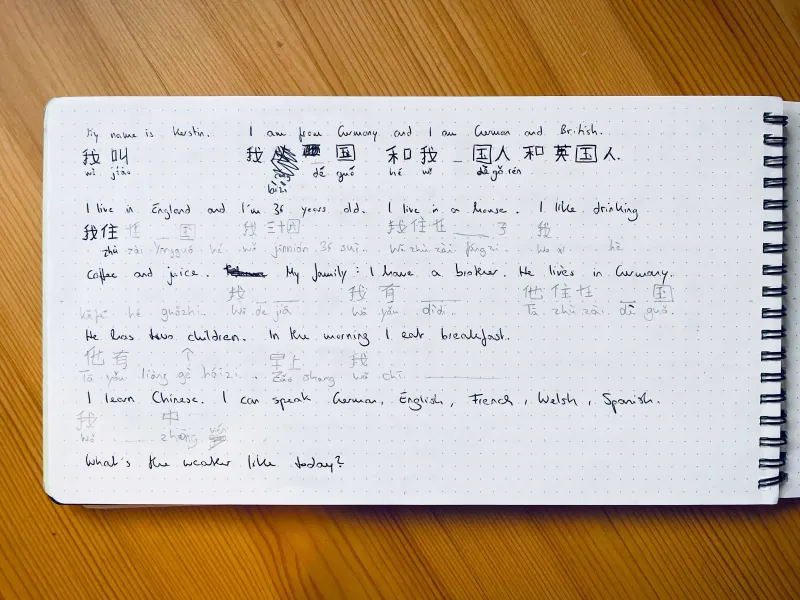 My name is Kerstin. I am from Germany and I am German and British.
我叫 我 国 和我 _ 国人 和 英国人.
wǒ jiào dé guó hé wǒ dé gǒ rén
bízi
I live in England and I'm 36 years old. I live in a house. I like drinking
我住 国 我 三十 我住 子 我
zhù zài Yīngguó hé wǒ jīnnián 36 suì.. Wǒ zhù zài fángzi. Wǒ xǐ hē
coffee and juice. My family: I have a brother. He lives in Germany.
我 __ __ 我 有 ___ 他 住 _ 国
hé guǒzhī. Wǒ de jiā wǒ yǒu dìdi.. Tā zhù zài dé guó.
He has two children. In the morning I eat breakfast.
他 有 ↑ 早上 我
Tā yǒu liǎng gè háizi.. Zǎo shang wǒ chī ______
I learn Chinese. I can speak German, English, French, Welsh, Spanish.
我 中
wǒ ___ zhōng
What's the weather like today?